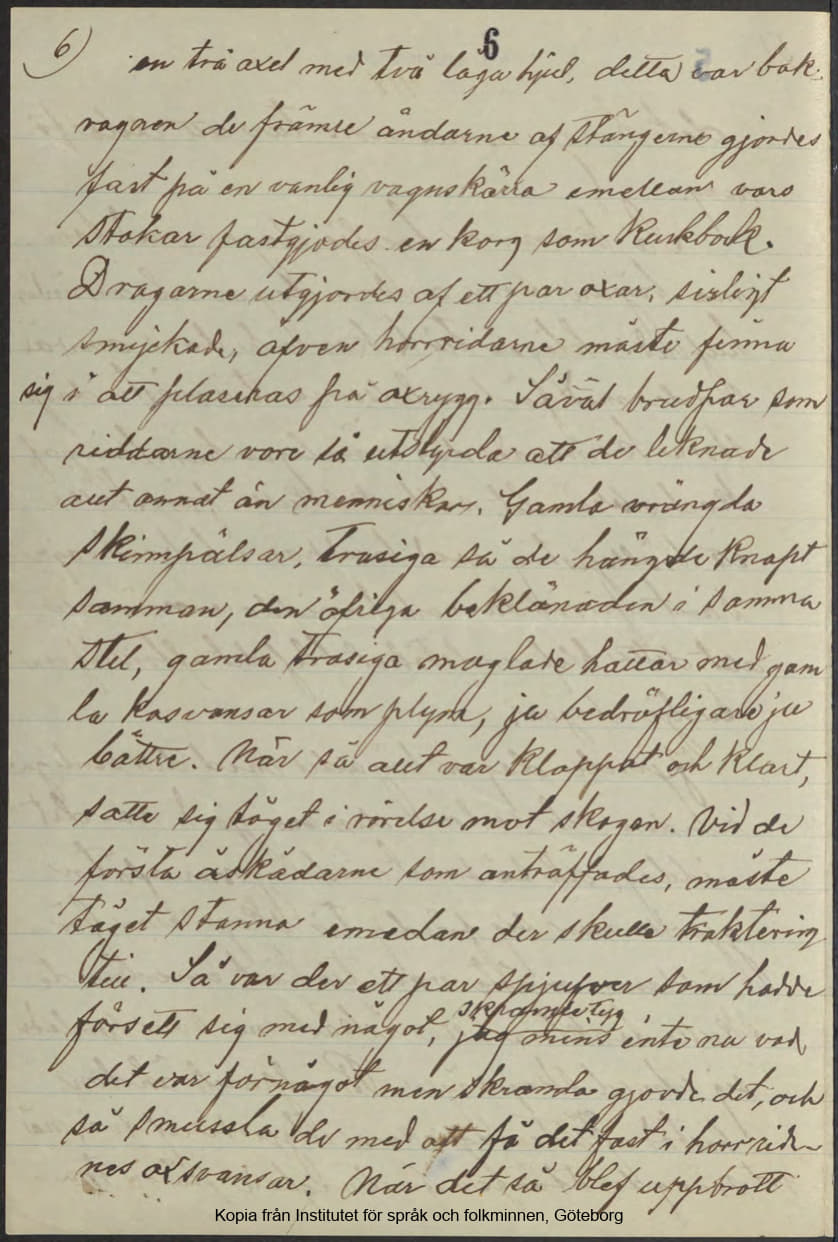 6) 6
en trä axel med två låga hjul, detta var bak-
vagnen de främre ändarne af stängerne gjordes
fast på en vanlig vagnskärra emellan vars
stakar fastgjodes en korg som Kuskbock.
Dragarne utgjordes af ett par oxar, sirligt
smyckade, äfven horrridarne måste finna
sig i att plaseras på oxrygg. Såväl brudpar som
riddarne vore så utstyrda att de liknade
allt annat än menniskor. Gamla vrängda
Skinnpälsar, trasiga så de hängde knapt
samman, den öfriga beklänaden i samma
stil, gamla trasiga maglade hattar med gam
la kosvansar som plym, ju bedröfligare ju
bättre. När så allt var klappat och klart,
satte sig tåget i rörelse mot skogen. Vid de
första åskådarne som anträffades, måste
tåget stanna emedan der skulle traktering
till. Så var der ett par spjufver som hadde
försett sig med något, skrammeltyg
jag mins inte nu vad
det var för något men skramla gjorde det, och
så smussla de med att få det fast i horrrid-
nes oxsvansar. När det så blef uppbrott
Kopia från Institutet för språk och folkminnen, Göteborg